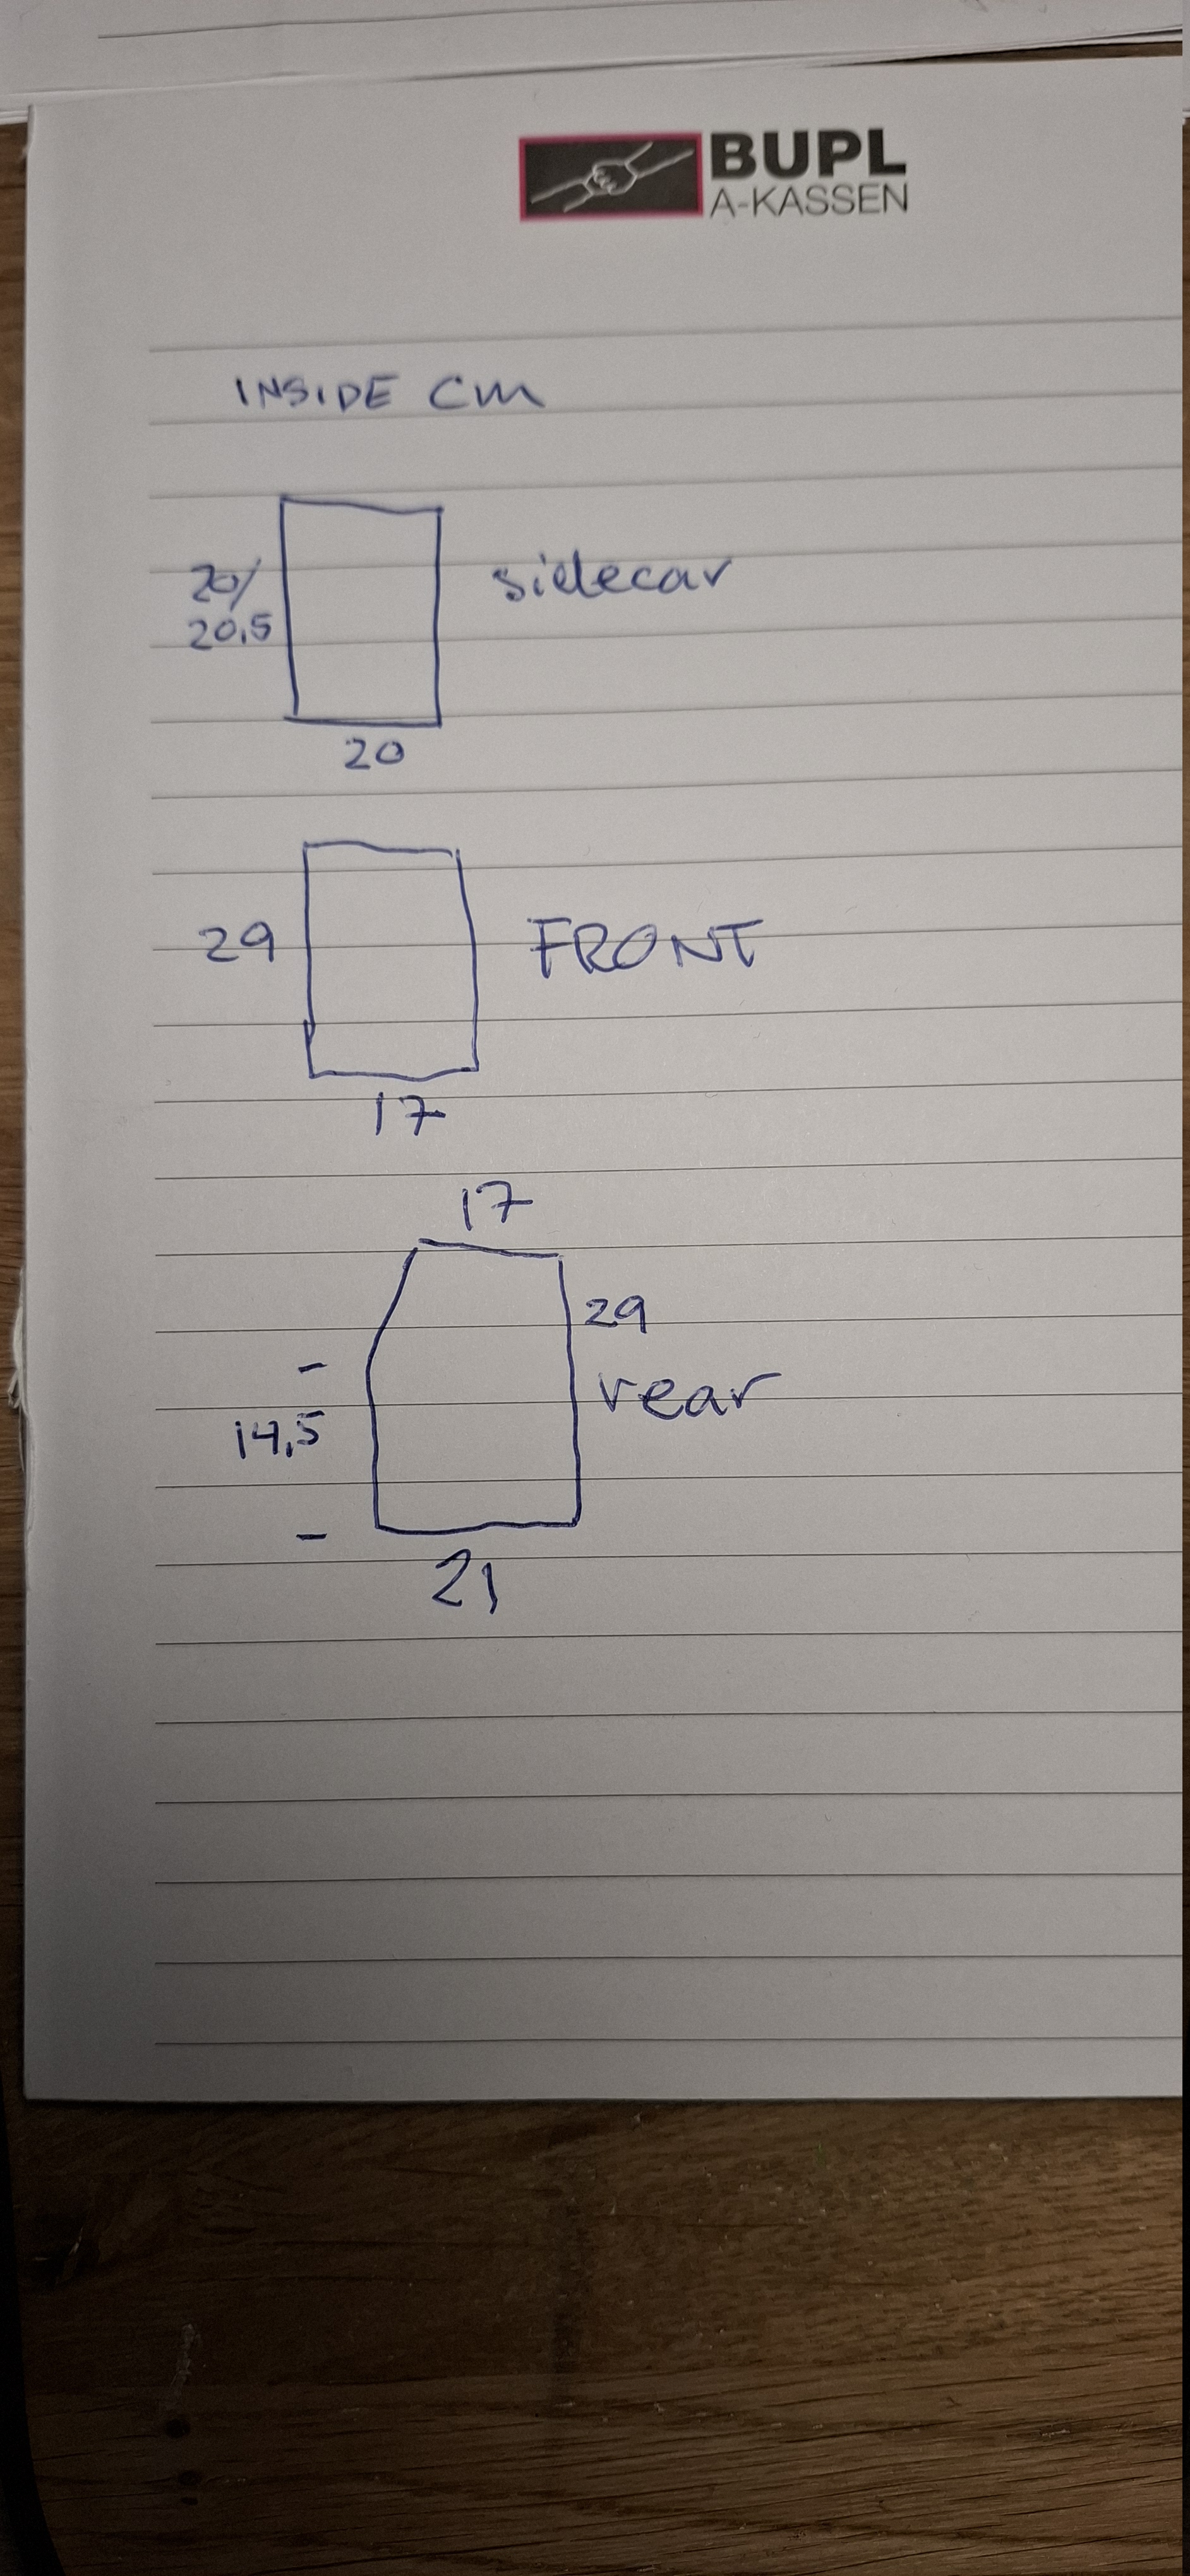 BUPL
A-KASSEN
INSIDE cm
20/
20,5
sidecar
20
29
FRONT
17
17
29
rear
14,5
21